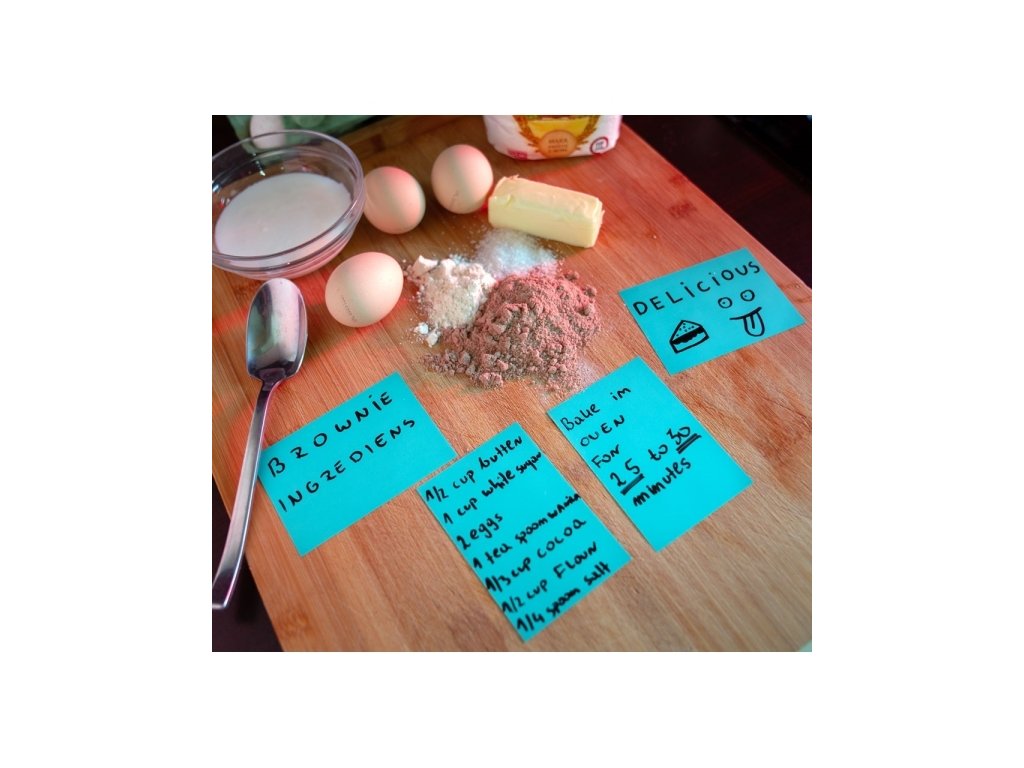 BROWNIE
INGREDIENS
1/2 cup butter
1 cup white sugar
2 eggs
1 tea spoon
1/3 cup COCOA
1/2 cup FLOUR
1/4 spoon salt
Bake im
OVEN
FOR
25 to 30
minutes
DELiCiOUS